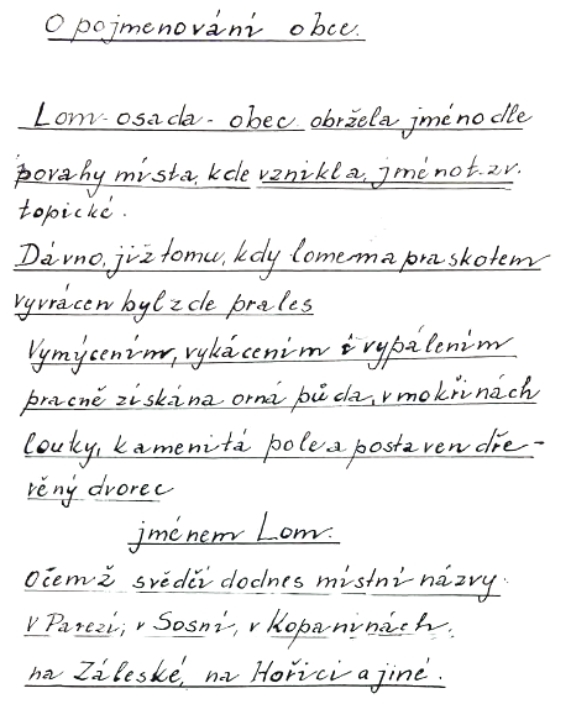 O pojmenování obce.
Lom - osada - obec obržela jméno dle
povahy místa, kde vznikla, jméno t. zv.
topické.
Dávno, již tomu, kdy lomem a praskotem
vyvrácen byl zde prales
Vymýcením, vykácením i vypálením
pracně získána orná půda, v mokřinách
louky, kamenitá pole a postaven dře-
věný dvorec
jménem Lom.
O čemž svědčí dodnes místní názvy.
V Parezí, v Sosní, v Kopaninách,
na Záleské, na Hořici a jiné.